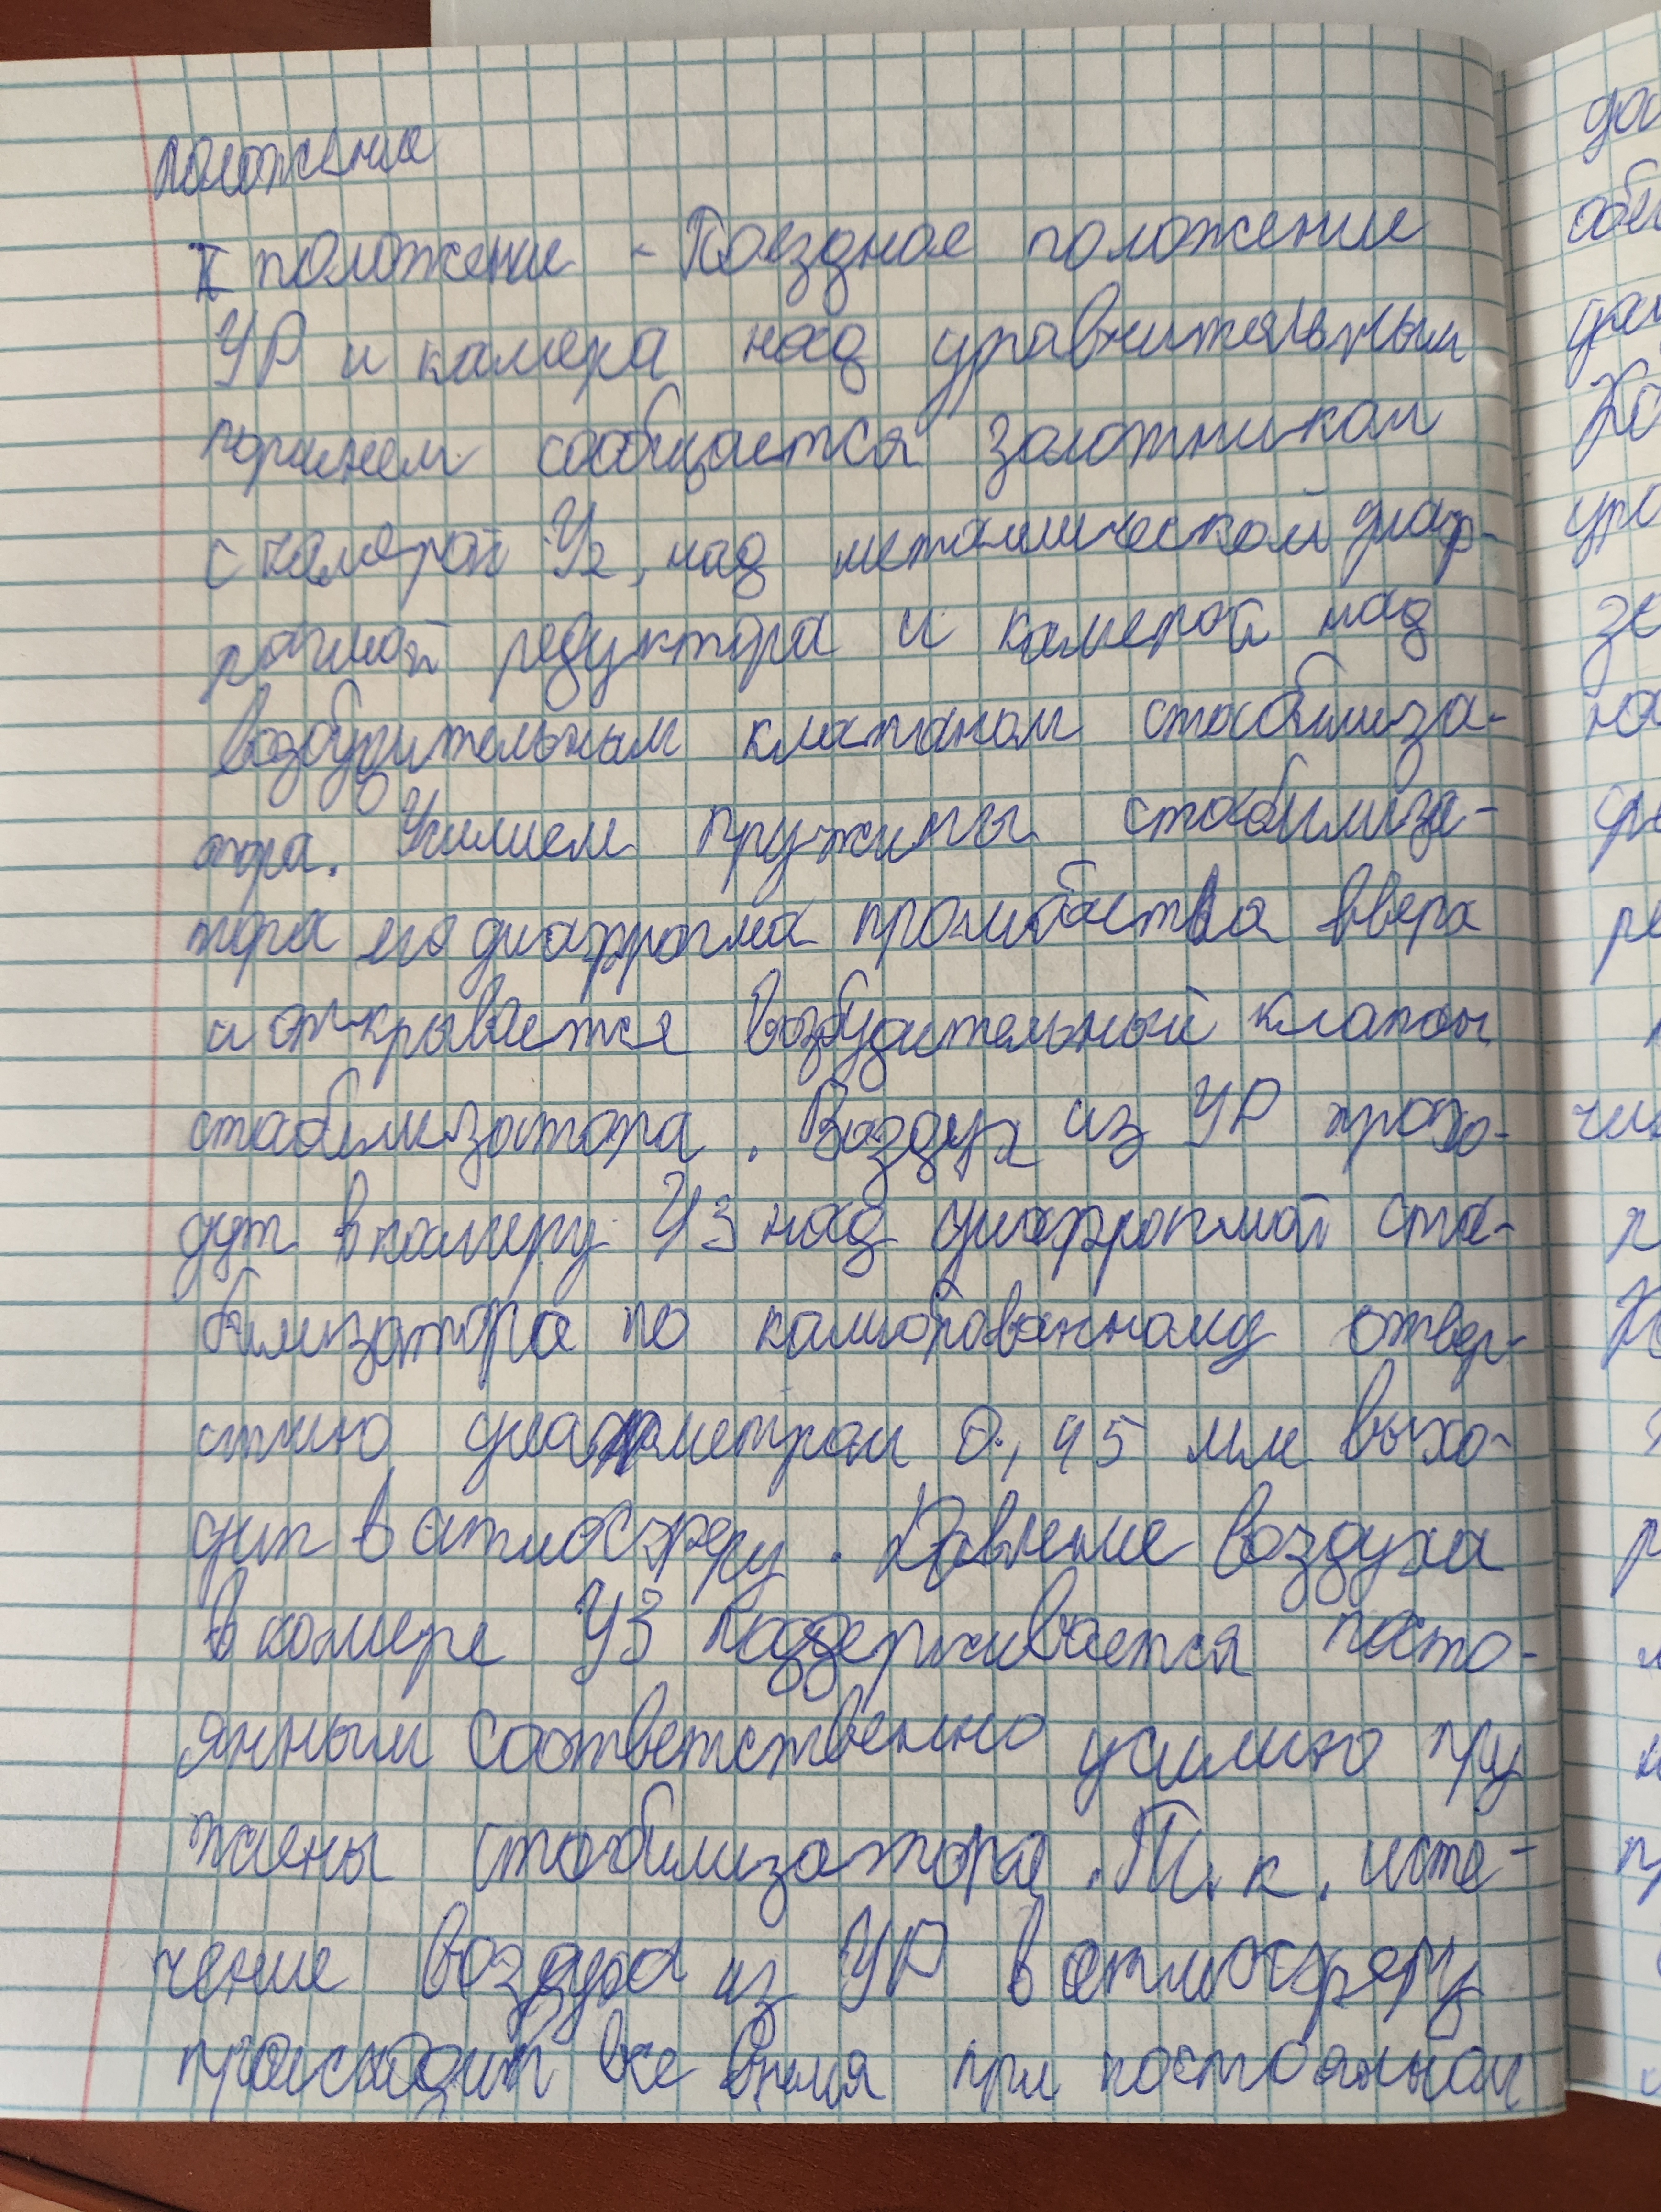 положение
II положение - Поездное положение
УР и камера над уравнительным
поршнем сообщается золотником
с камерой У2, над металлической диаф-
рагмой редуктора и камерой над
возбудительным клапаном стабилиза-
тора. Усилием пружины стабилиза-
тора его диафрагма прогибается вверх
и открывается возбудительный клапан
стабилизатора. Воздух из УР прохо-
дит в камеру У3 над диафрагмой ста-
билизатора по калиброванному отвер-
стию диаметром 0,45 мм выхо-
дит в атмосферу. Давление воздуха
в камере У3 поддерживается посто-
янным соответственно усилию пру
жины стабилизатора. Т.к. исте-
чение воздуха из УР в атмосферу
происходит все время при постоянном